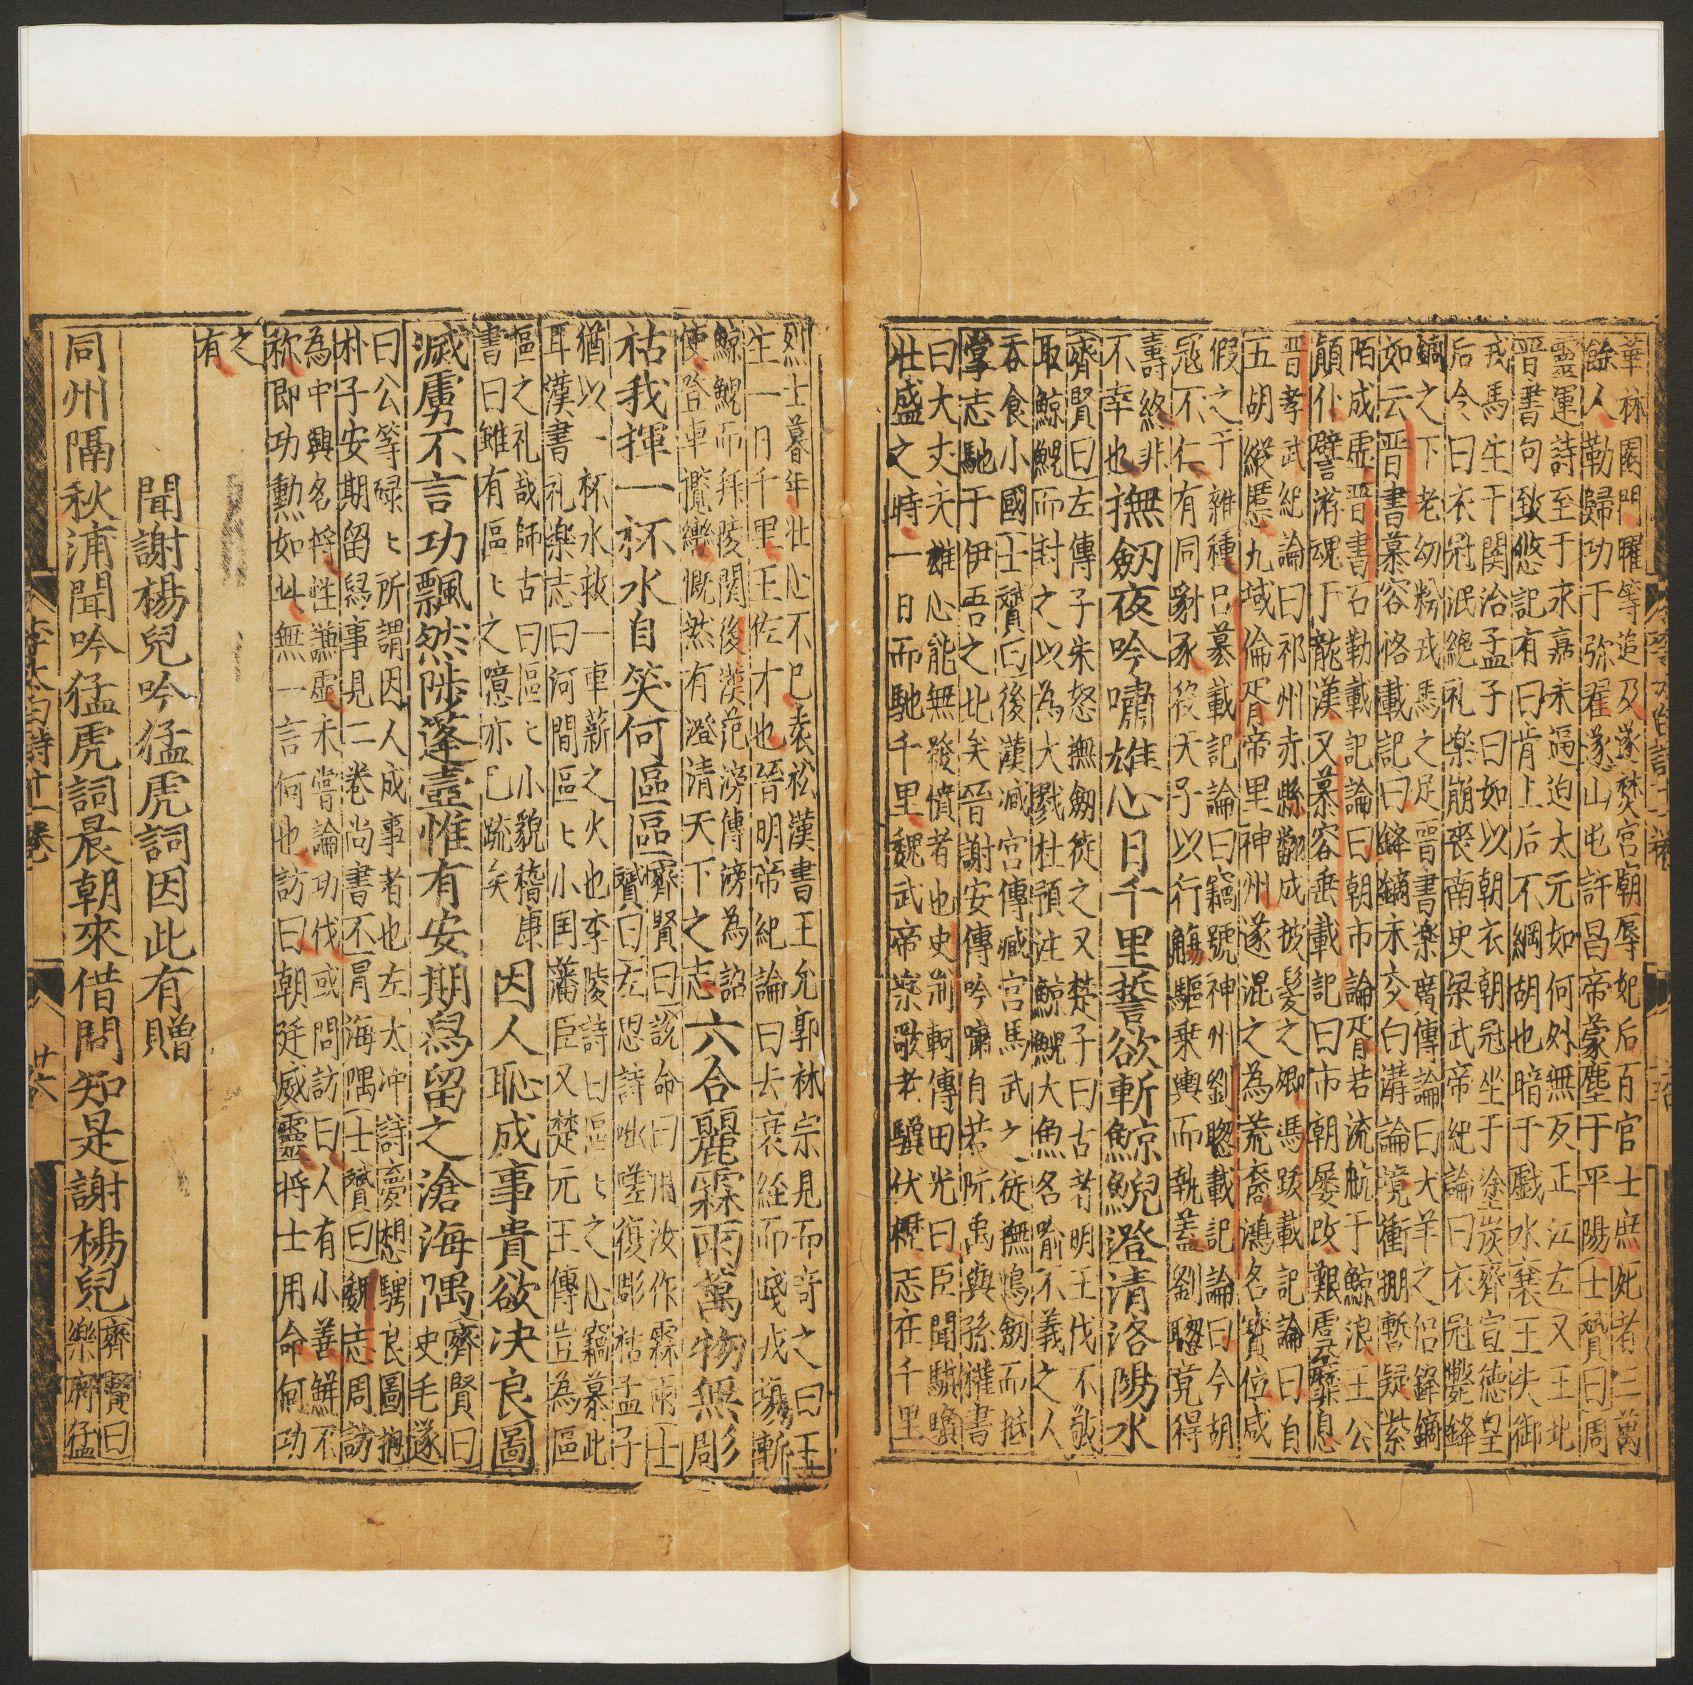 華林園門曜等追及遂焚宮廟辱妃后百官士庶死者三萬
餘人勒歸功于弥曜遂山屯許昌帝蒙塵于平陽士贇曰周
靈運詩至于永嘉末逼迫太元如何外無反正江左又王此
晋書句致悠記有曰肯上后不綱胡也暗于戲水襄王失御
戎馬生于関洽孟子曰如以朝衣朝冠坐于塗炭齊宣徳皇
后令曰衣冠泯絶礼楽崩喪南史梁武帝紀論曰衣冠斃鋒
鏑之下老㓜粉戎馬之足晋書楽廣傳論曰犬羊之侣鋒鏑
如云晋書慕容恪載記曰鋒鏑未交白溝論境衝棚暫疑紫
陌成虚晋書石勒載記論曰朝市論胥若流航于鯨浪王公
顛仆譬游魂于龍漢又慕容垂載記曰市朝屡改艱虞靡息
晋孝武紀論曰祁州赤縣翻成披髪之郷馮跋載記論曰自
五胡縱慝九域倫胥帝里神州遂混之為荒裔鴻名寳位咸
假之于雜種吕墓載記論曰竊號神州劉聦載記論曰今胡
冦不仁有同豺豕役天子以行觴驅乗輿而執盖劉聦竟得
壽終非
不幸也撫劒夜吟嘯雄心日千里誓欲斬鯨鯢澄清洛陽水
齊賢曰左傳子朱怒撫劒從之又楚子曰古者明王伐不敬
取鯨鯢而封之以為大戮杜預注鯨鯢大魚名喻不義之人
吞食小國士贇曰後漢减宫傳臧宫馬武之徒撫鳴劒而抵
掌志馳于伊吾之北矣晉謝安傳吟嘯自若阮禹與孫權書
曰大丈夫雄心能無發憤者也史荆軻傳田光曰臣聞騏驥
壮盛之時一日而馳千里魏武帝樂歌老驥伏櫪志在千里
烈士暮年壮心不巳袁松漢書王允郭林宗見而竒之曰王
生一日千里王佐才也晉明帝紀論曰去衰絰而踐戎場斬
鯨鯢而拜陵闕後漢范滂傳滂為詔
使登車攬轡慨然有澄清天下之志六合麗霖雨萬物無彫
枯我揮一杯水自笑何區區齊賢曰説命曰用汝作霖雨士
贇曰左思詩咄嗟復彫枯孟子
猶以一杯水救一車薪之火也李陵詩曰區ヒ之心竊慕此
耳漢書礼楽志曰河間區ヒ小国藩臣又楚元王傳豈為區
區之礼哉師古曰區ヒ小貌嵇康
書曰雖有區ヒ之噫亦巳疏矣因人恥成事貴欲决良圖
滅虜不言功飄然陟蓬壺惟有安期舄留之滄海隅齊賢曰
史毛遂
曰公等碌ヒ所謂因人成事者也左太冲詩夢想騁良圖抱
朴子安期留舄事見二巻尚書不冒海隅士贇曰魏志周訪
為中興名将性謙虚未嘗論功伐或問訪曰人有小善鮮不
称即功勲如此無一言何也訪曰朝廷威靈将士用命何功
之
有
聞謝楊兒吟猛虎詞因此有贈
同州隔秋浦聞吟猛虎詞晨朝來借問知是謝楊兒齊賢曰
樂府猛
李太白詩十一卷
廿六